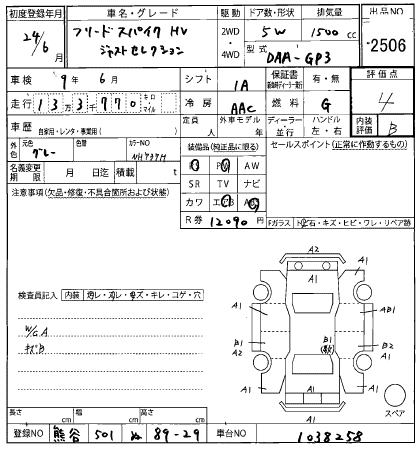 初度登録年月 車名・グレード 駆動 ドア数・形状 排気量 出品NO
24/6月 フリード スパイク HV ジャストセレクション 2WD・4WD 5W 1500cc 2506
型式 DAA-GP3
車検 9年 6月 シフト IA 保証書 有・無 評価点
走行 13万3千770 キロ・マイル 冷房 AAC 燃料 G 4
車歴 自家用・レンタ・事業用( ) 定員 人 外車モデル 年 ディーラー・並行 ハンドル 左・右 内装評価 B
外色 元色 グレー 色替 カラーNO NH737M 装備品(純正品に限る) セールスポイント(正常に作動するもの)
名義変更期限 月 日迄 積載 t PS PW AW
注意事項(欠品・修復・不具合箇所および状態) SR TV ナビ
カワ エアB ABS
R券 12090円 Fガラス トビ石・キズ・ヒビ・ワレ・リペア跡
A2
A1 A1 A1
検査員記入 内装 汚レ・ズレ・キズ・キレ・コゲ・穴
A1 AB1
W/G A
キズB
B1 A2 B1 B2
A1 A1
A1
スペア
長さ cm 幅 cm 高さ cm
登録NO 熊谷 501 ぬ 89-29 車台NO 1038258